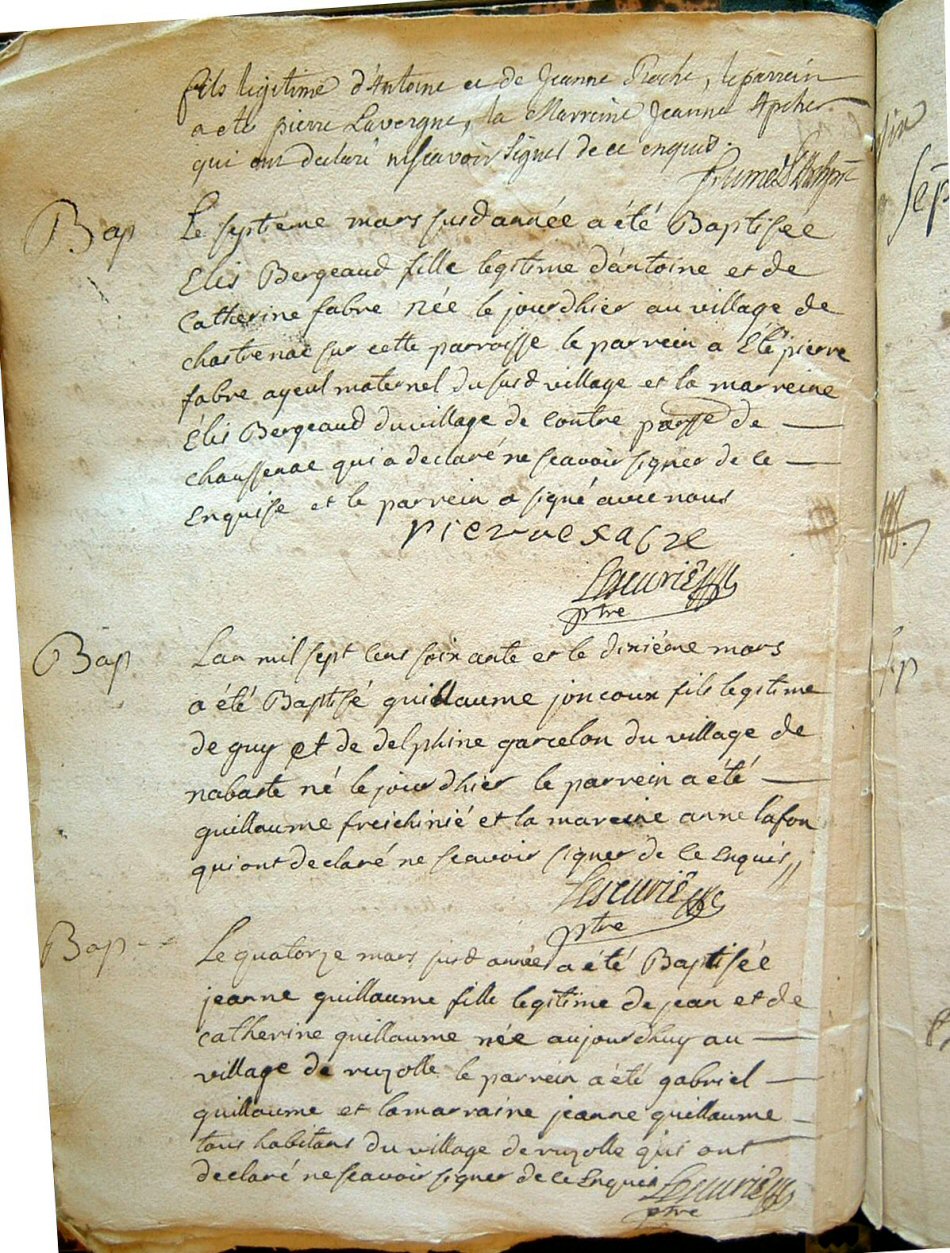 fils legitime d'Antoine et de Jeanne Roche, le parrein
a eté pierre Lavergne, la Marreine Jeanne Apcher
qui ont declaré ne scavoir signer de ce enquis.
Bap
Le septieme mars susd année a été Baptisée
Elis Bergeaud fille legitime d'antoine et de
Catherine fabre née le jourdhier au village de
chastrenac sur cette parroisse le parrein a Été pierre
fabre ayeul maternel du susd village et la marreine
Élis Bergeaud du village de contre parsse de
chaussenac qui a declaré ne scavoir signer de ce
Enquise et le parrein a signé avec nous
pierre fabre
Lescurié
ptre
Bap
Lan mil sept cens soixante et le dixiéme mars
a été Baptisé guillaume joncoux fils legitime
de guy et de delphine garcelon du village de
nabaste né le jourdhier le parrein a été
guillaume freichinié et la mareine anne lafon
qui ont declaré ne scavoir signer de ce Enquis //
Lescurié
ptre
Bap
Le quatorze mars susd année a été Baptisée
jeanne guillaume fille legitime de jean et de
catherine guillaume née aujourdhuy au
village de ruzolle le parrein a été gabriel
guillaume et la marraine jeanne guillaume
tous habitans du village de ruzolle qui ont
declaré ne scavoir signer de ce Enquis
Lescurié
ptre
sep